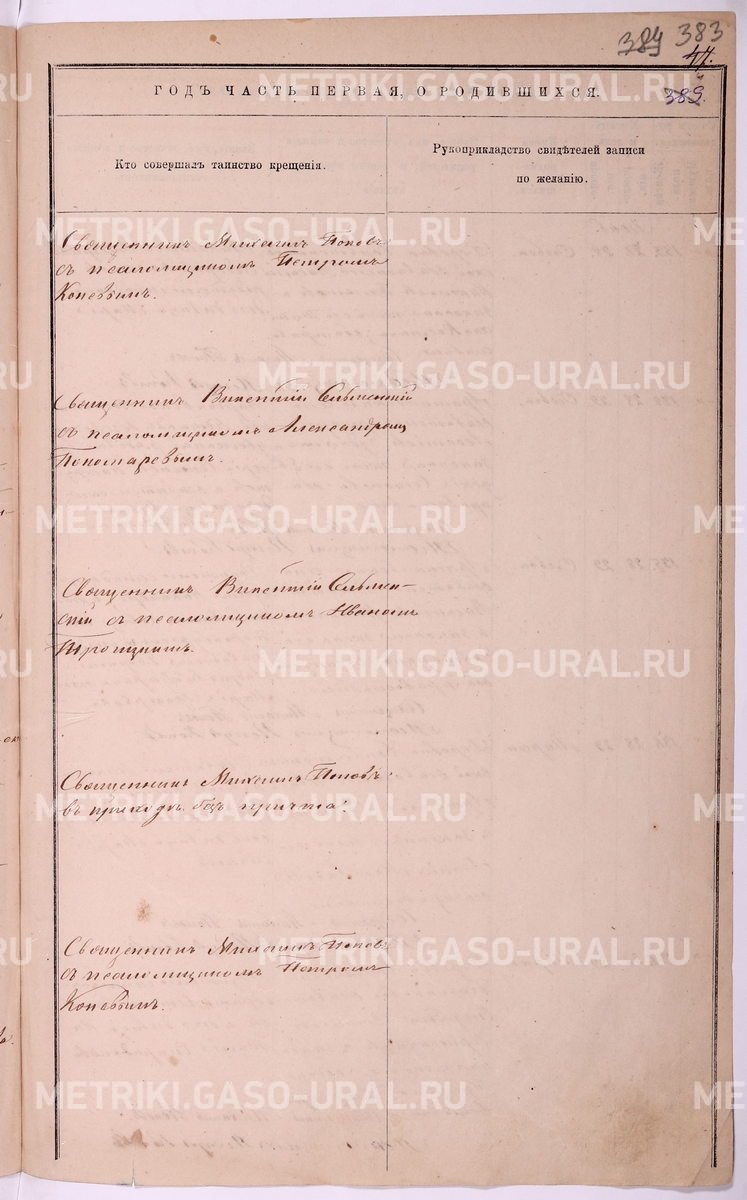 384 383
47.
389.
ГОДЪ ЧАСТЬ ПЕРВАЯ, О РОДИВШИХСЯ.
Кто совершалъ таинство крещенія.
Рукоприкладство свидѣтелей записи
по желанію.
Священникъ Михаилъ Поповъ
съ псаломщикомъ Петромъ
Коневымъ.
Священникъ Викентій Сельменскій
съ псаломщикомъ Александромъ
Пономаревымъ.
Священникъ Викентій Сельмен-
скій съ псаломщикомъ Иваномъ
Троицкимъ.
Священникъ Михаилъ Поповъ
въ приходѣ безъ причта.
Священникъ Михаилъ Поповъ
съ псаломщикомъ Петромъ
Коневымъ.
METRIKI.GASO-URAL.RU